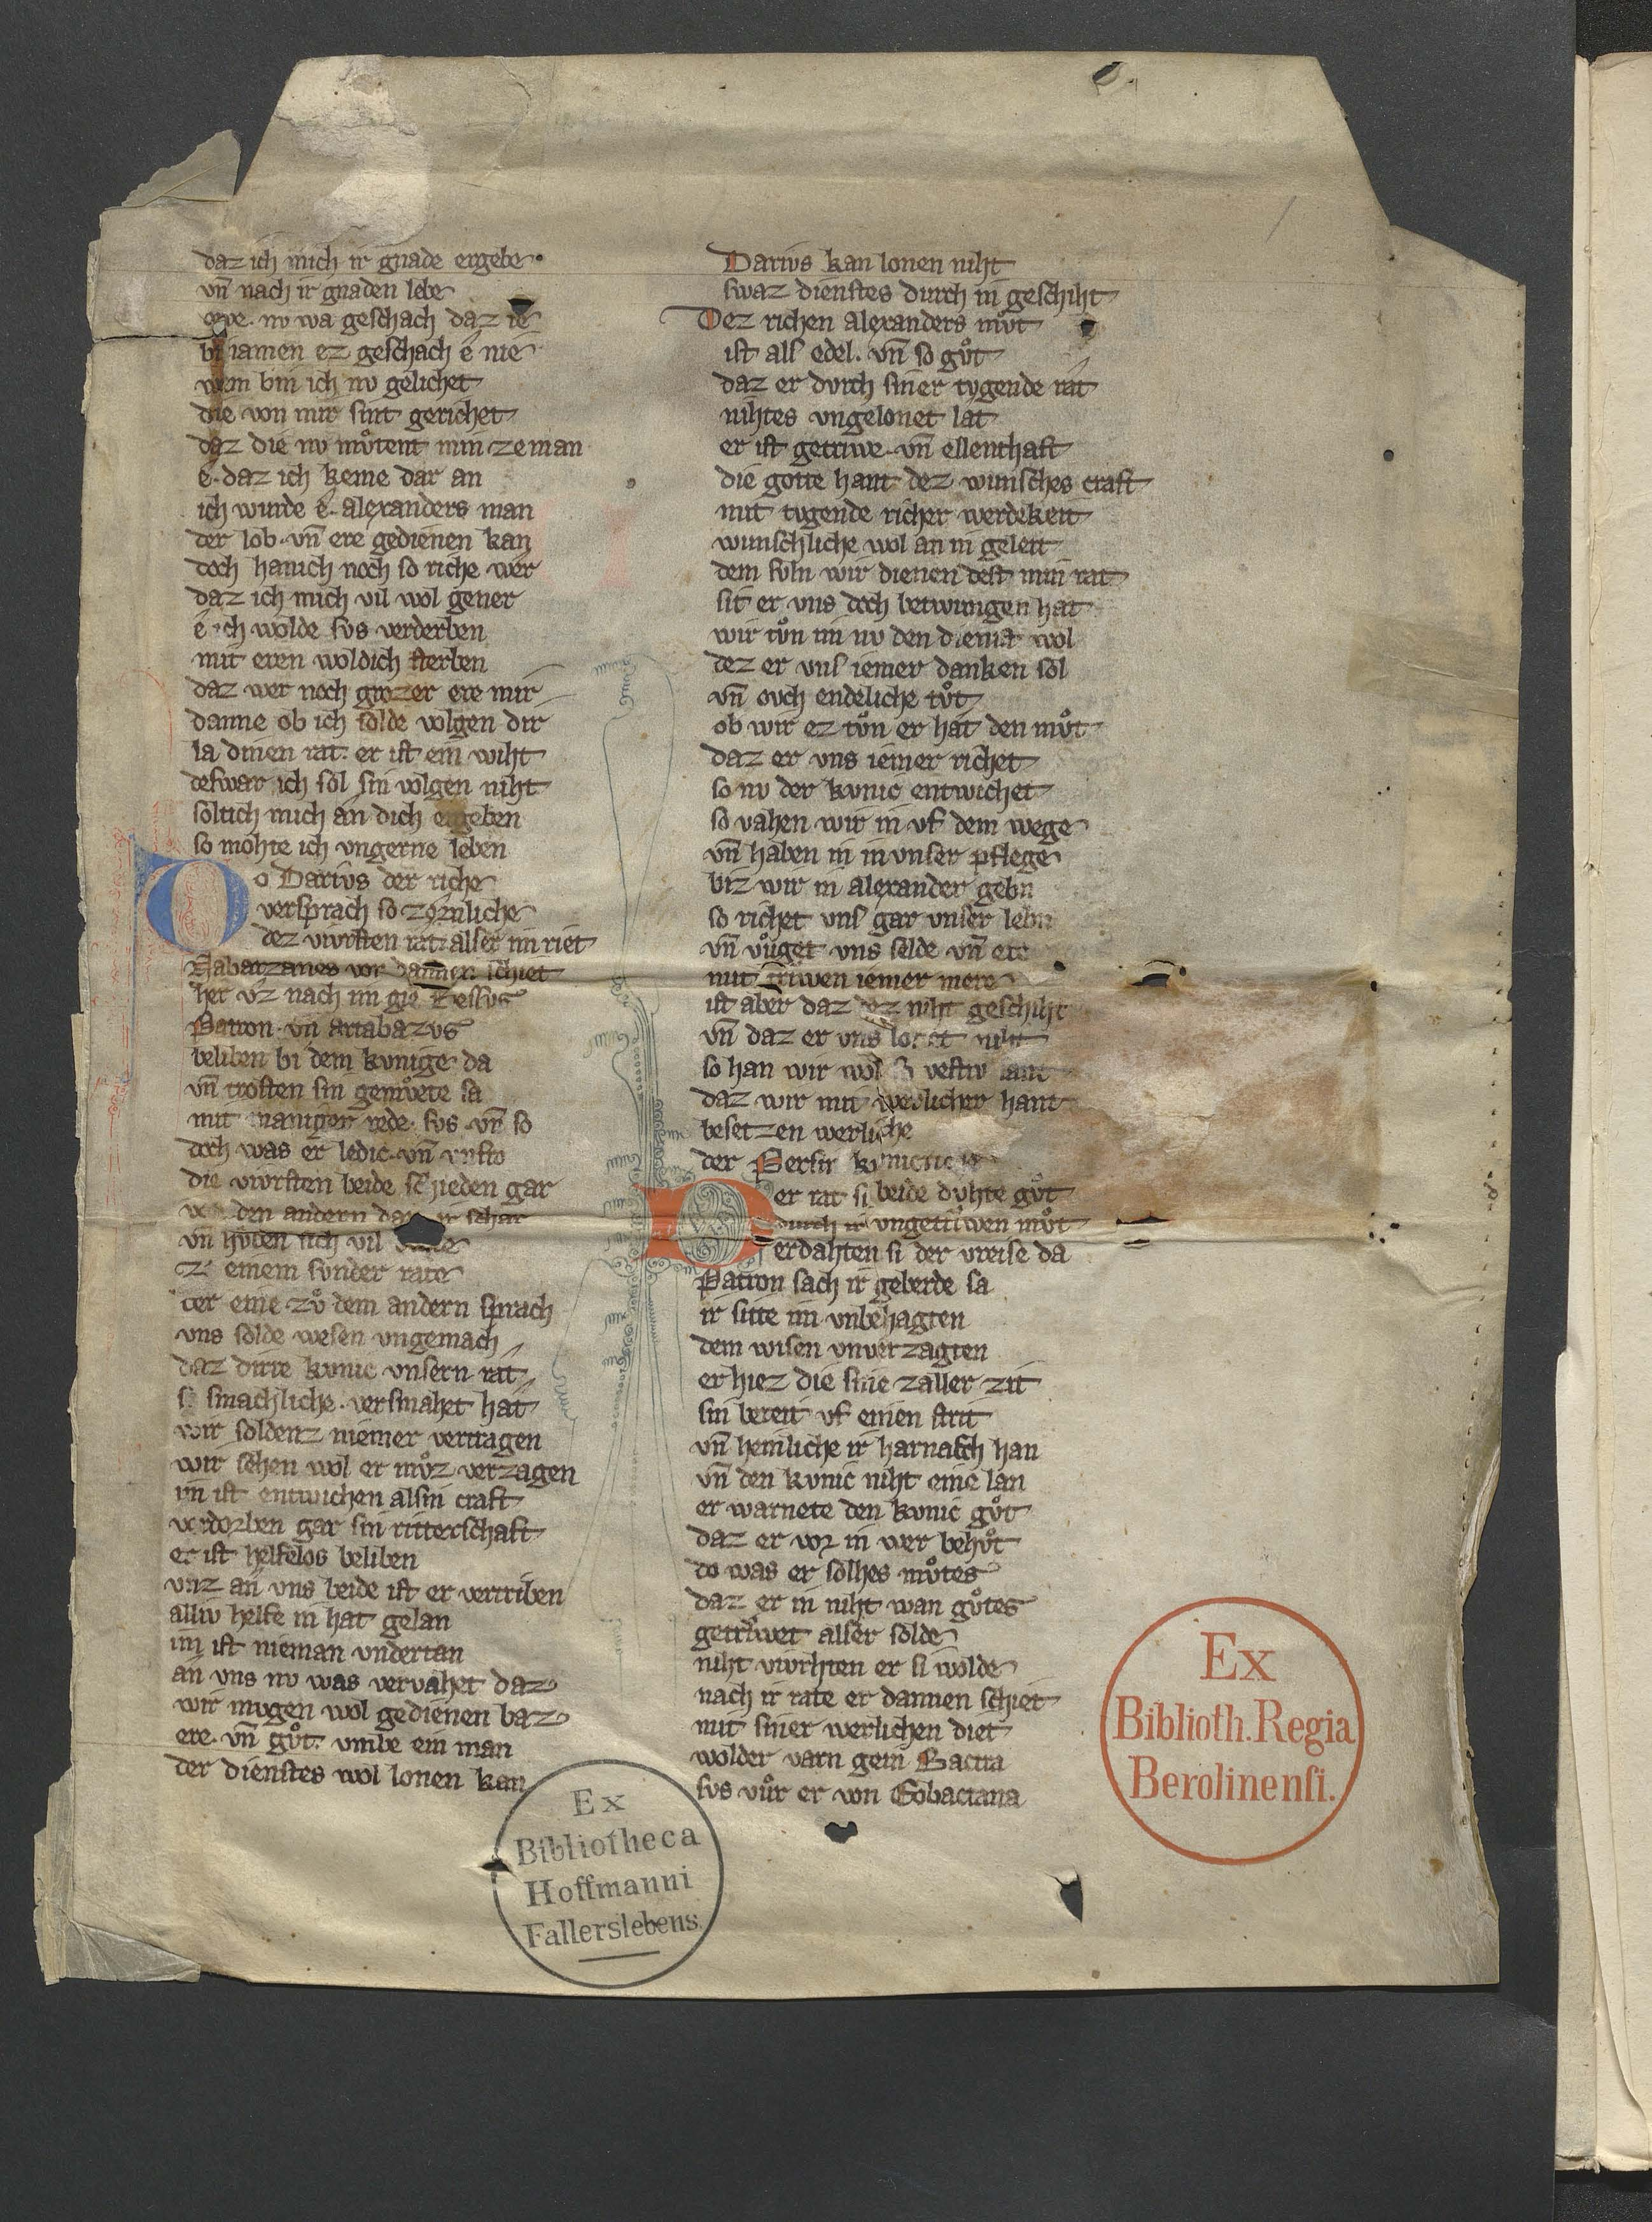 daz ich mich ir gnade ergebe·
vn̄ nach ir gnaden lebe
owe· nv wa geschach daz ie
bi iamen ez geschach é nie
wem bin ich nv gelichet
die von mir sint gerichet
daz die nv mv̊tent min ze man
é· daz ich keme dar an
ich wurde é· alexanders man
der lob· vn̄ ere gedienen kan
doch hanich noch so riche wer
daz ich mich vil wol gener
é ich wolde svs verderben
mit eren woldich sterben
daz wer noch grozer ere mir
danne ob ich solde volgen dir
la dinen rat· er ist ein wiht
deswar ich sol sin volgen niht
soltich mich an dich ergeben
so mohte ich vngerne leben
Do Darivs der riche
versprach so zórnliche
dez vivrsten rat· alser im riet
Nabarzanes vor dannen schiet
her vz nach im gie Bessvs
Patron· vn̄ artabazvs
beliben bi dem kvnige da
vn̄ trosten sin gemv̊te sa
mit maniger rede· svs· vn̄ so
doch was er ledic· vn̄ vnfro
die vivrsten beide schieden gar
den andern ir schar
vn̄ hvben sich vil
ze einem svnder rate
der eine· zv̊ dem andern sprach
vns solde wesen vngemach
daz dirre kvnic vnsern rat
so smachliche· versmahet hat
wir soldenz niemer vertragen
wir sehen wol er mv̊z verzagen
im ist entwichen alsin craft
verdorben gar sin ritterschaft
er ist helfelos beliben
vnz an vns beide ist er vertriben
alliv helfe in hat gelan
im ist nieman vndertan
an vns nv was vervahet daz
wir mvgen wol gedienen baz
ere· vn̄ gv̊t· vmbe ein man
der dienstes wol lonen kan
Darivs kan lonen niht
swaz dienstes durch in geschiht
Dez richen alexanders mv̊t
ist als edel· vn̄ so gv̊t
daz er dvrch siner tvgende rat
nihtes vngelonet lat
er ist getriwe· vn̄ ellenthaft
die gotte hant dez wunsches craft
mit tvgende richer werdekeit
wunschliche wol an in geleit
dem svln wir dienen dest min rat
sit er vns doch betwungen hat
wir tv̊n im nv den dienst wol
dez er vns iemer danken sol
vn̄ ovch endeliche tv̊t
ob wir ez tv̊n er hat den mv̊t
daz er vns iemer richet
so nv der kvnic entwichet
so vahen wir in vf dem wege
vn̄ haben in in vnser pflege
biz wir in alexander gebn
so richet vns gar vnser lebn
vn̄ vv̊get vns selde vn̄ ere
mit triwen iemer mere
ist aber daz ez niht geschiht
vn̄ daz er vns lonet niht
so han wir wol so vestiv lant
daz wir mit werlicher hant
besetzen werliche
der Persir
Der rat si beide dvhte gv̊t
durch ir vngetriwen mv̊t
erdahten si der vreise da
Patron sach ir geberde sa
ir sitte im vnbehagten
dem wisen vnverzagten
er hiez die sine zaller zit
sin bereit vf einen strit
vn̄ heinliche ir harnasch han
vn̄ den kvnic niht eine lan
er warnete den kvnic gv̊t
daz er vor in wer behv̊t
do was er solhes mv̊tes
daz er in niht wan gv̊tes
getriwet alser solde
niht vivrhten er si wolde
nach ir rate er dannen schiet
mit siner werlichen diet
wolder varn gein Bactra
svs vv̊r er von Eobactana
Ex
Biblioth. Regia
Berolinensi.
Ex
Bibliotheca
Hoffmanni
Fallerslebens.